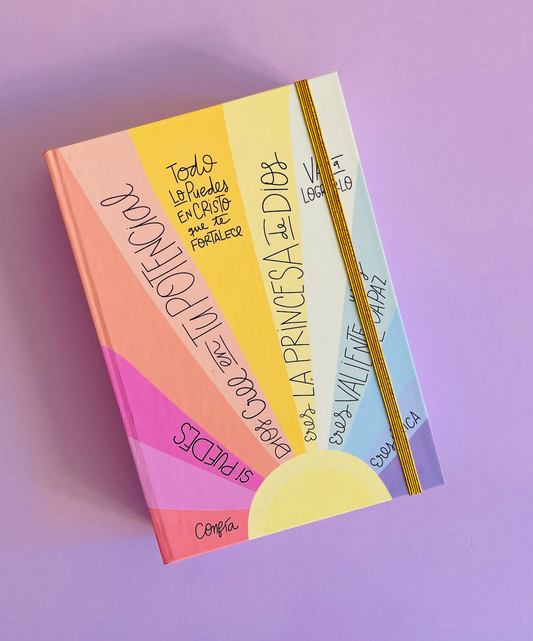 Confía
SI PUEDES
DIOS Cree en TU POTENCIAL
Todo
LO Puedes
EN CRISTO
que te
FORTALECE
eres LA PRINCESA de DIOS
VAS a
LOGRARLO
eres VALIENTE
CAPAZ
eres